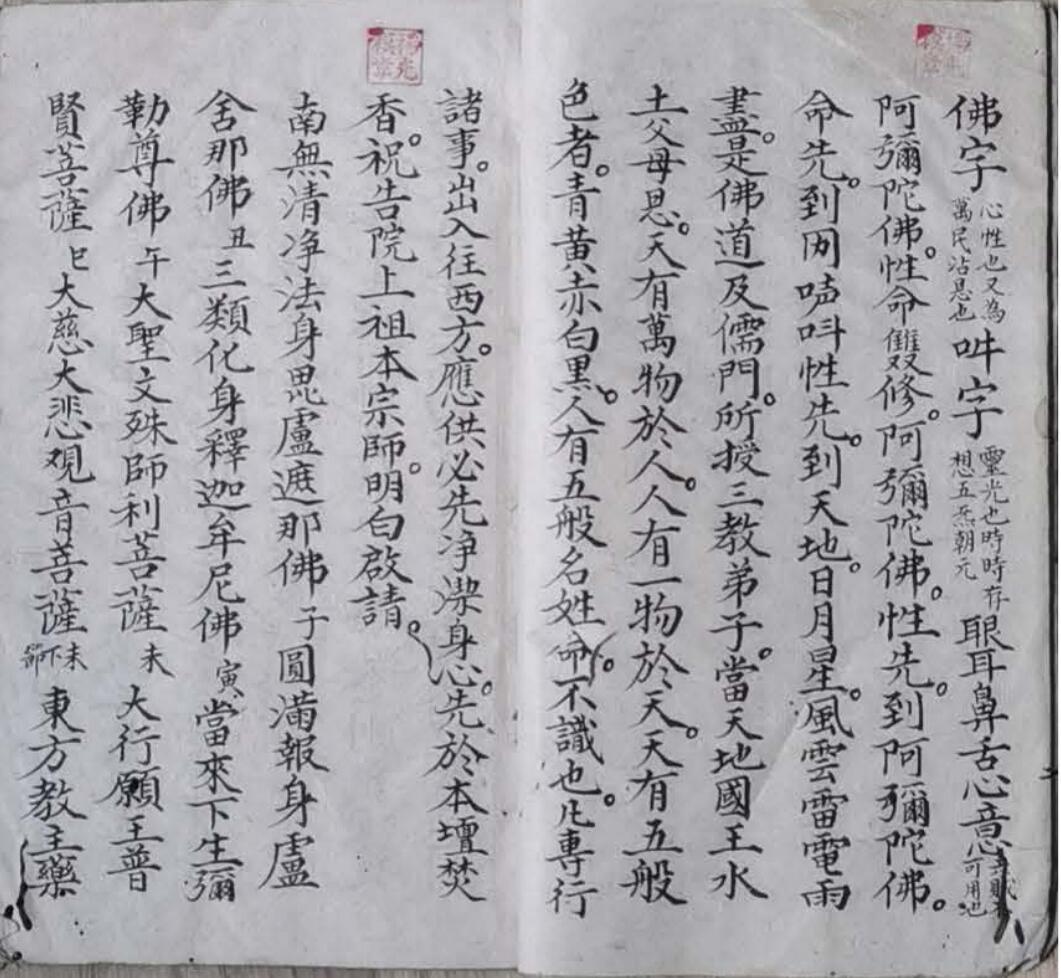 佛字心性也又為萬民沾恩也吽字靈光也時時存想五炁朝元眼耳鼻舌心意可用也
阿彌陀佛。性命雙双修。阿彌陀佛。性先。到阿彌陀佛。
命先。到㓁吽性先。到天地。日月星。風雲雷電雨
盡。是佛道及儒門。所授三教弟子。當天地國王水
土父母恩。天有萬物於人。人有一物於天。天有五般
色者。青黃赤白黑。人有五般名姓命。不識也。凡專行
諸事。出入往西方。應供必先净潔身心。先於本壇焚
香。祝告院上祖本宗師。明白啟請。
南無清净法身毘盧遮那佛子圓滿報身盧
舍那佛丑三類化身釋迦牟尼佛寅當來下生彌
勒尊佛午大聖文殊師利菩薩未大行願王普
賢菩薩巳大慈大悲观音菩薩東方教主藥